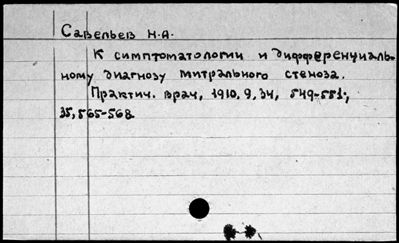 Савельев Н.А.
К симптоматологии и дифференциаль-
ному диагнозу митрального стеноза.
Практич. врач, 1910, 9, 34, 549-551;
35, 565-568